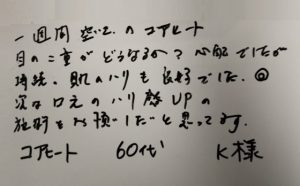 一週間空いてのコアヒート
目の二重がどうなるか?心配でしたが
持続、肌のハリも良好でした。◎
次は口元のハリ感UPの
施術をお願いしたいと思ってます。
コアヒート 60代 K様